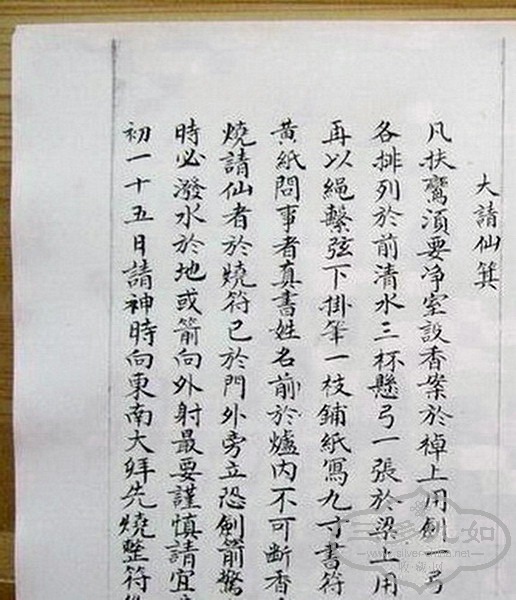 大請仙箕
凡扶鸞須要净室設香案於棹上用劍一弓
各排列於前清水三杯懸弓一張於梁上用
再以繩繫弦下掛筆一枝鋪紙寫九寸書符
黃紙問事者真書姓名前於爐内不可断香
燒請仙者於燒符已於門外旁立恐劍箭驚
時必潑水於地或箭向外射最要謹慎請宜
初一十五日請神時向東南大拜先燒整符
www.silver-online.net